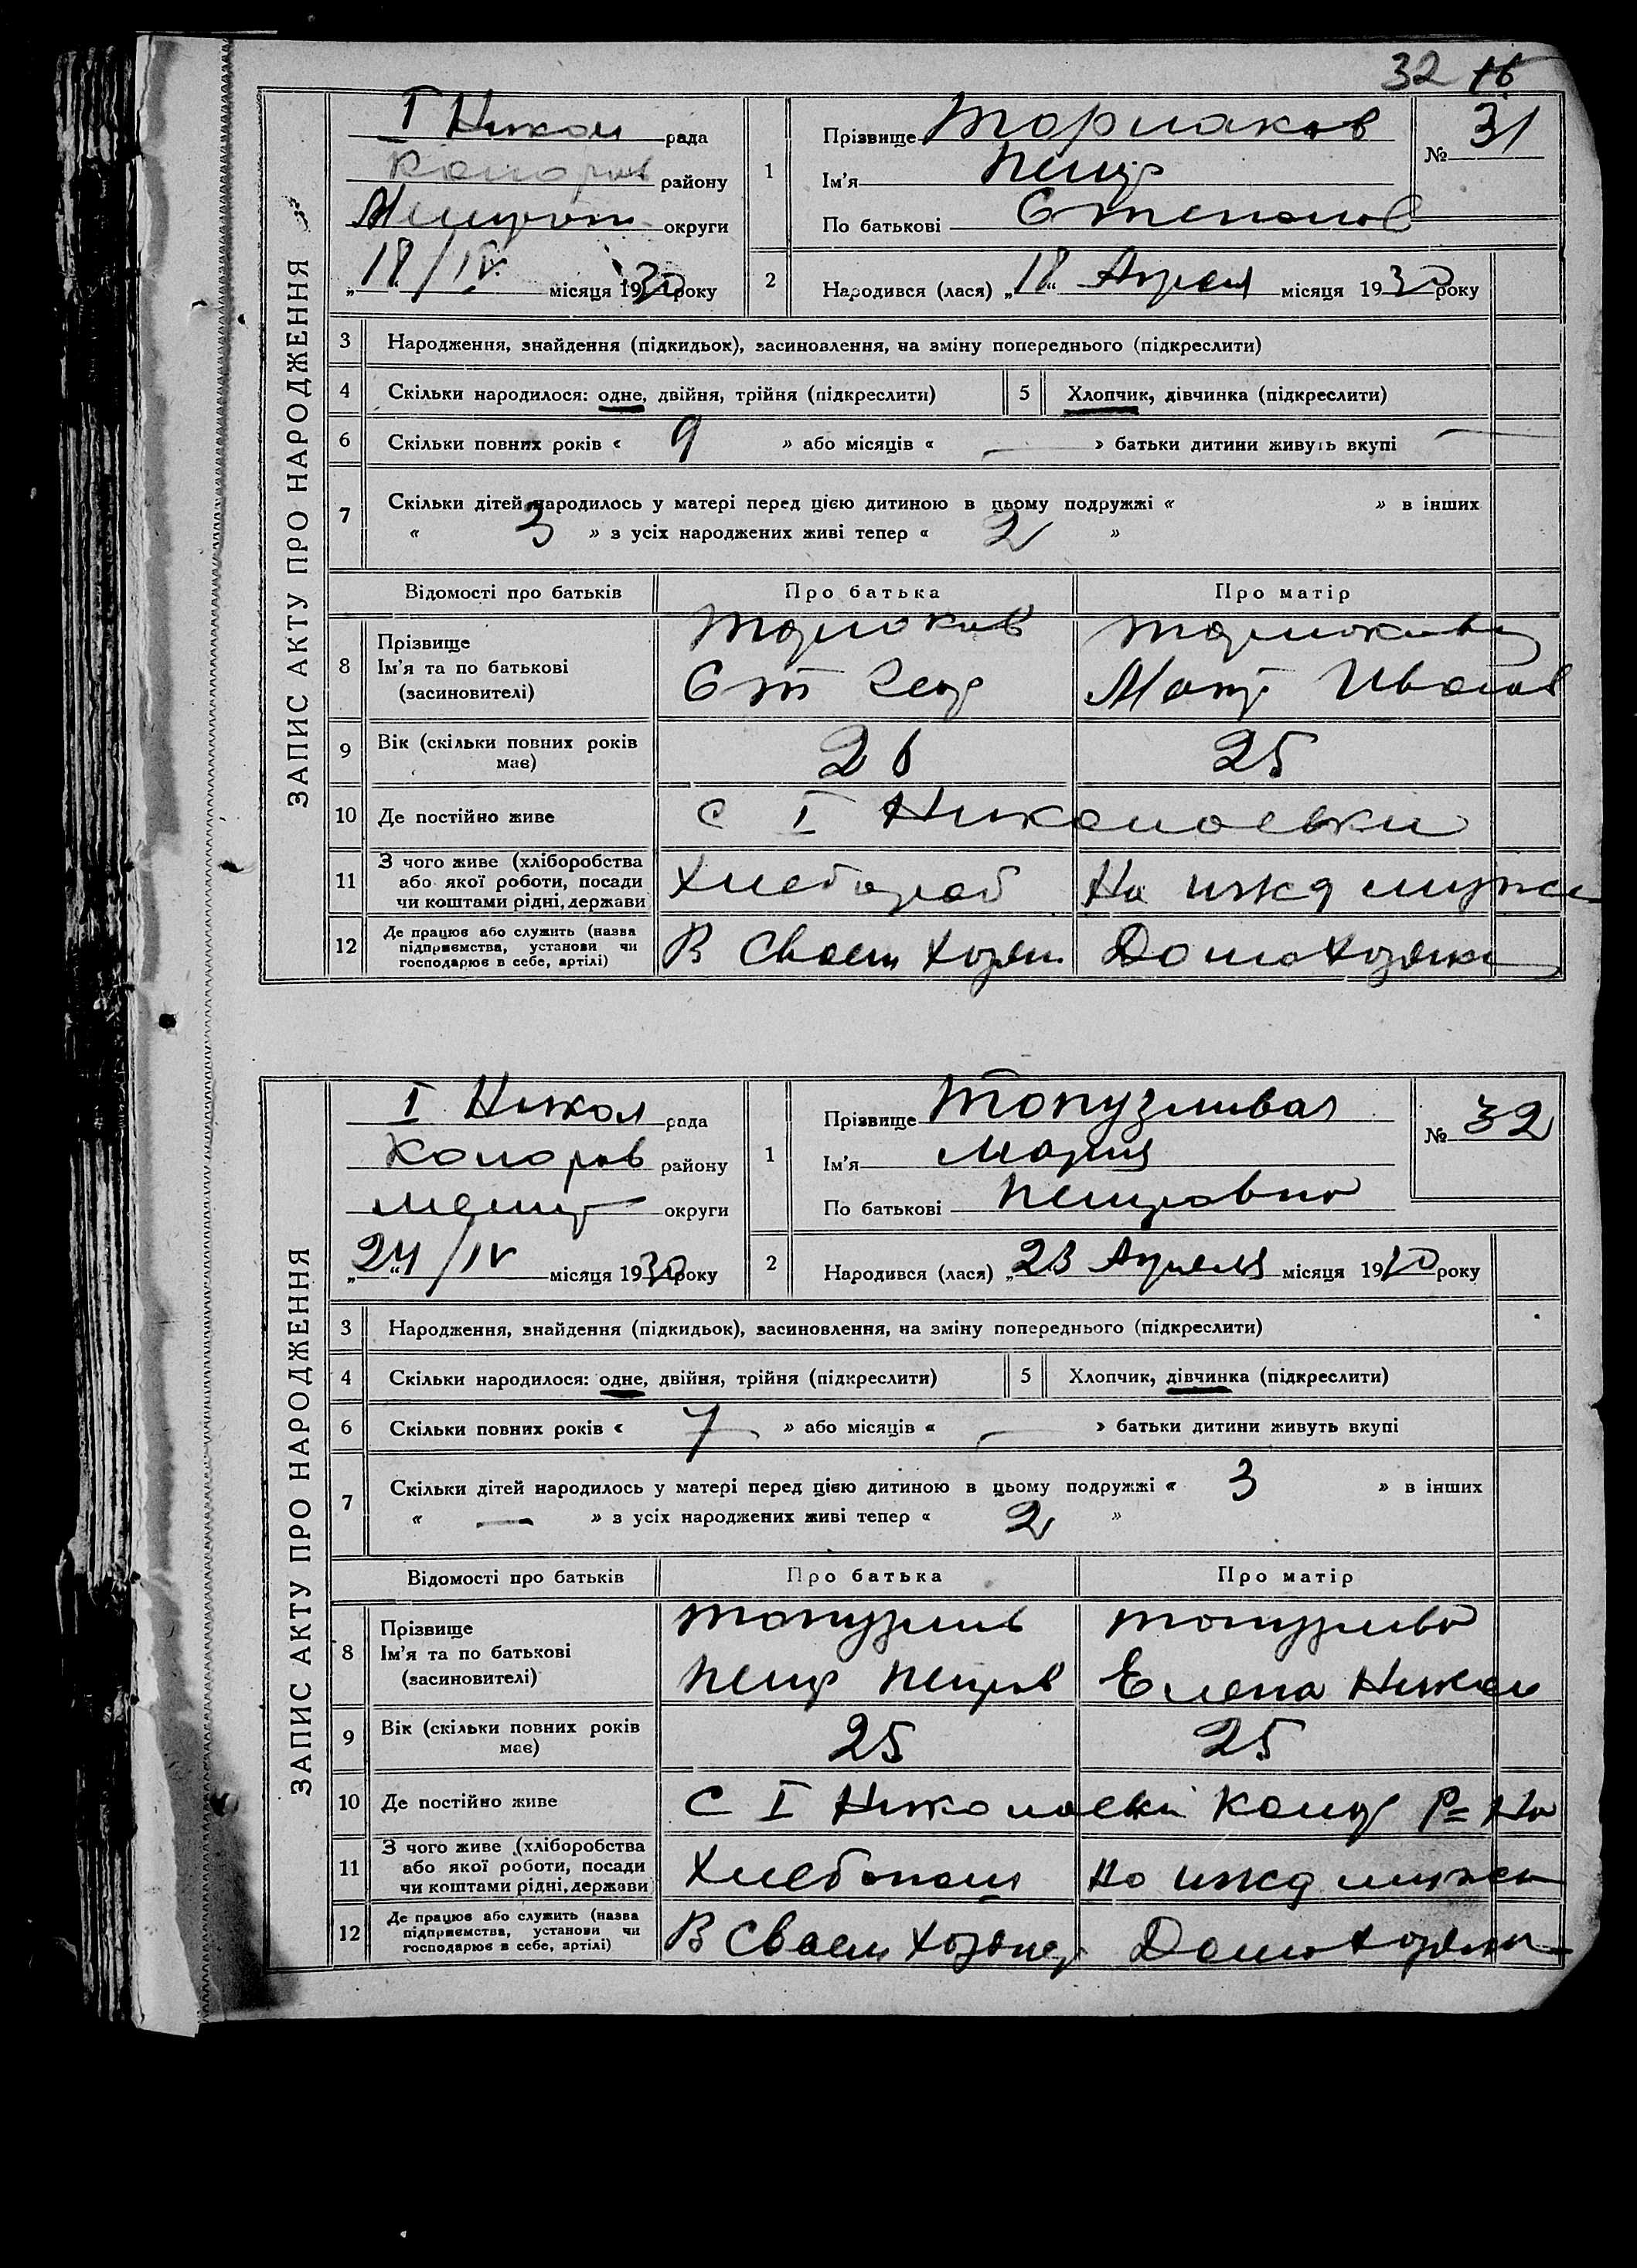 32 16
ЗАПИС АКТУ ПРО НАРОДЖЕННЯ
I Никол рада
району
округи
18/IV місяця 1930 року
1
Прізвище Тормаков
Ім'я Петр
По батькові Степанов
№ 31
2
Народився (лася) „18“ Апреля місяця 1930 року
3 Народження, знайдення (підкидьок), засиновлення, на зміну попереднього (підкреслити)
4 Скільки народилося: одне, двійня, трійня (підкреслити) 5 Хлопчик, дівчинка (підкреслити)
6 Скільки повних років « 9 » або місяців « — » батьки дитини живуть вкупі —
7 Скільки дітей народилось у матері перед цією дитиною в цьому подружжі « » в інших
« 3 » з усіх народжених живі тепер « 2 »
Відомості про батьків Про батька Про матір
8 Прізвище
Ім'я та по батькові
(засиновителі)
Тормаков
Ст
Иванов
9 Вік (скільки повних років має) 26 25
10 Де постійно живе с I Николаевки
11 З чого живе (хліборобства або якої роботи, посади чи коштами рідні, держави Хлебороб На ижд мужа
12 Де працює або служить (назва підприємства, установи чи господарює в себе, артілі) В Своем хозяй Домохозяйка
ЗАПИС АКТУ ПРО НАРОДЖЕННЯ
I Никол рада
району
округи
„24“/IV місяця 1930 року
1
Прізвище Топузливая
Ім'я Мария
По батькові Петровна
№ 32
2
Народився (лася) „23 Апреля місяця 1930 року
3 Народження, знайдення (підкидьок), засиновлення, на зміну попереднього (підкреслити)
4 Скільки народилося: одне, двійня, трійня (підкреслити) 5 Хлопчик, дівчинка (підкреслити)
6 Скільки повних років « 7 » або місяців « — » батьки дитини живуть вкупі
7 Скільки дітей народилось у матері перед цією дитиною в цьому подружжі « 3 » в інших
« — » з усіх народжених живі тепер « 2 »
Відомості про батьків Про батька Про матір
8 Прізвище
Ім'я та по батькові
(засиновителі)
Топузлив Топузлива
Петр Петров Елена Никол
9 Вік (скільки повних років має) 25 25
10 Де постійно живе с I Николаевки Р-на
11 З чого живе (хліборобства або якої роботи, посади чи коштами рідні, держави Хлебопаш На ижд мужа
12 Де працює або служить (назва підприємства, установи чи господарює в себе, артілі) В Своем хозяй Домохозяйк